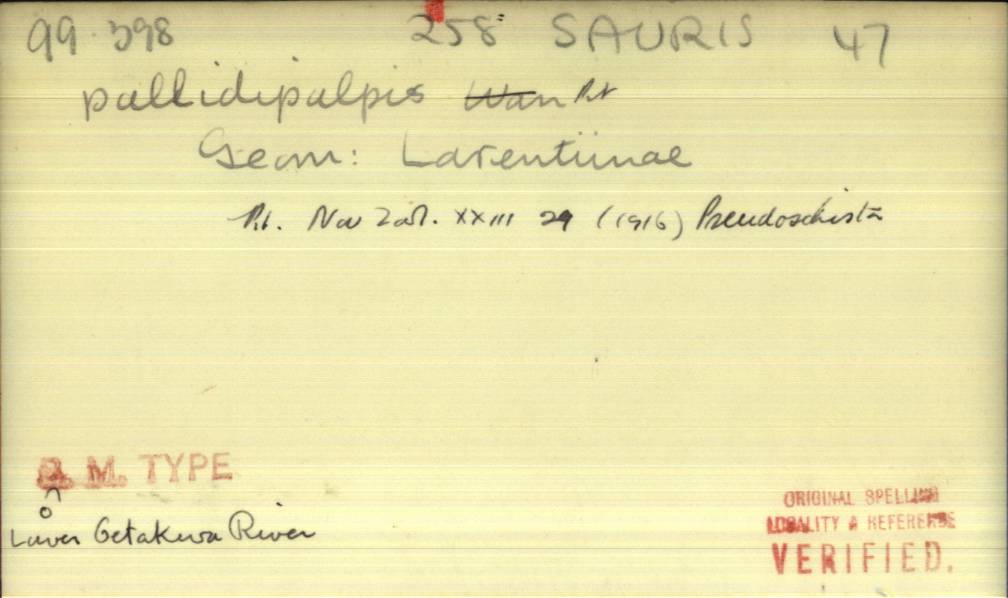 99.398 258 SAURIS 47
pallidipalpis Wan Pt
Geom: Larentiinae
Pt. Nov Zool. XXIII 29 (1916) Pseudoschista
B. M. TYPE
o
Lower Oetakwa River
ORIGINAL SPELLING
LOCALITY & REFERENCE
VERIFIED.